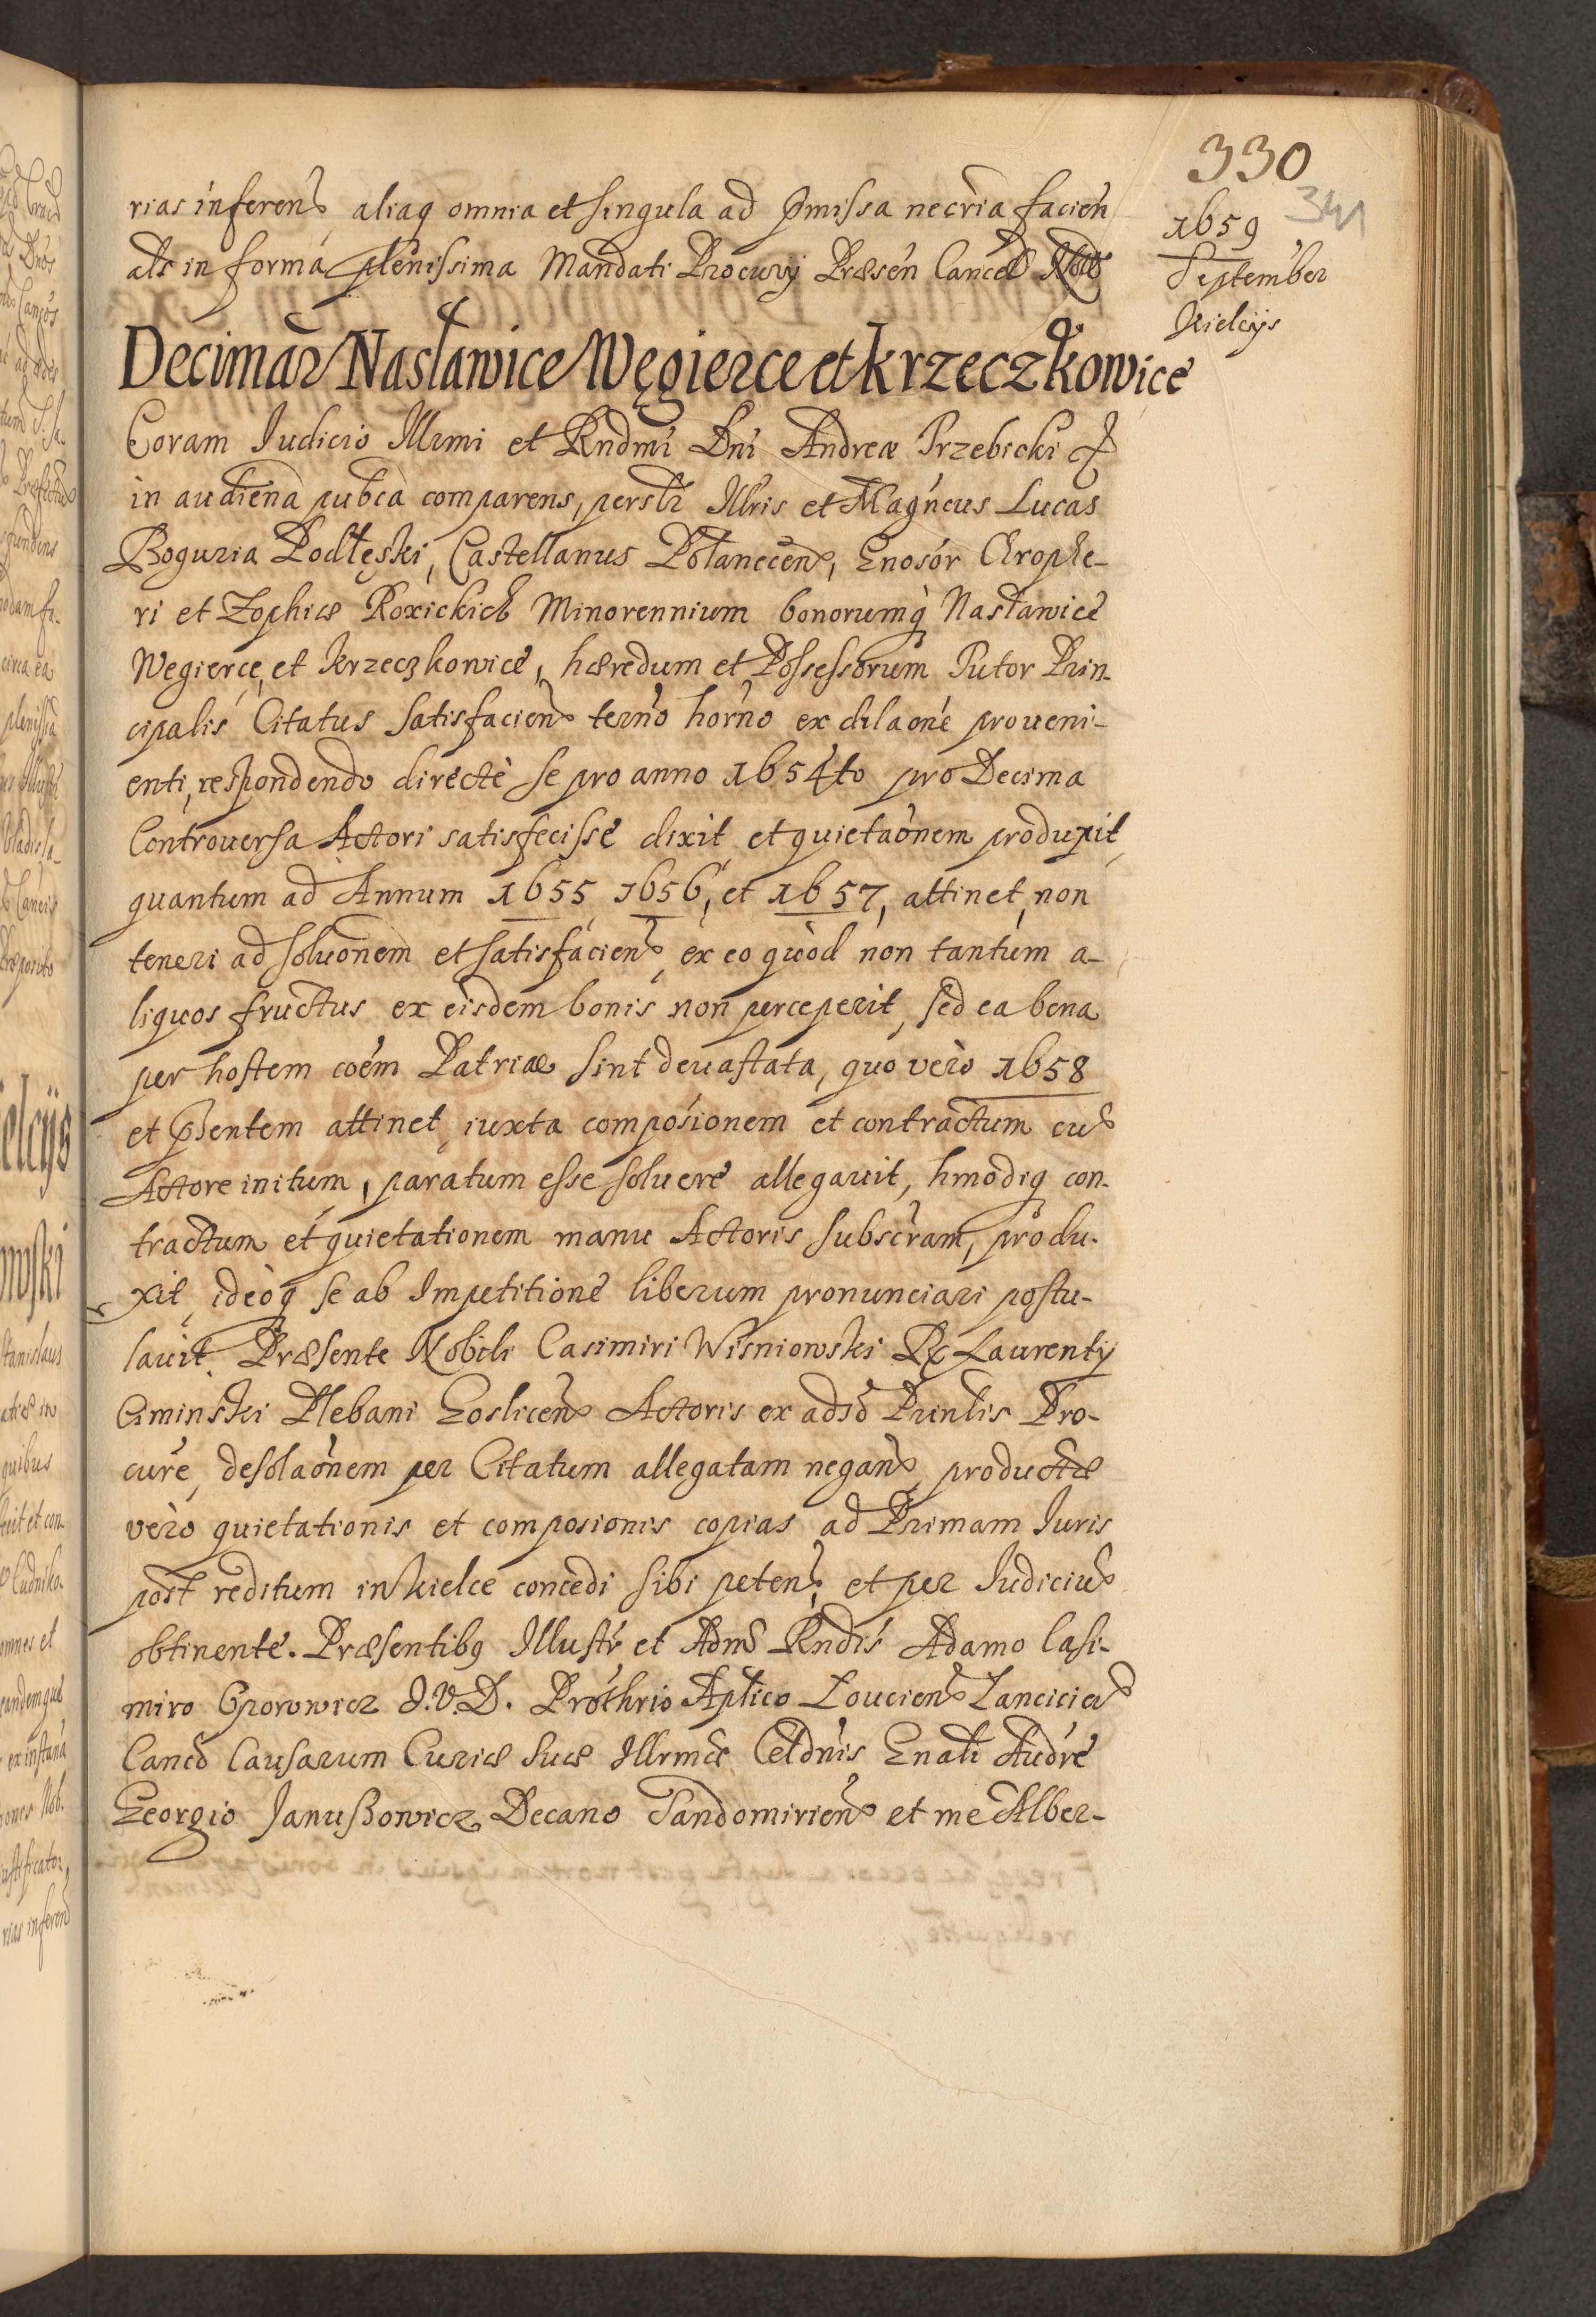 330
341
1659
September
Kielcijs
rias inferens aliaq omnia et singula ad pmissa necria facien
als in forma plenissima Mandati Procurrij Præsen Canc
Decimar Nasławice Węgierce et Krzeczkowice
Coram Judicio Illrmi et Rndmi Dni Andreæ Trzebicki
in audiena pubca comparens, personlr Illris et Magncus Lucas
Boguria Podłęski, Castellanus Połanecens, Gnosor Chrophe-
ri et Zophiæ Roxickich Minorennium bonorumq Nasławice
Wegierce, et Krzeczkowice, hæredum et Possessorum Tutor Prin-
cipalis Citatus satisfaciens terno horno ex dilaone proueni-
enti, respondendo directè se pro anno 1654to pro Decima
Controuersa Actori satisfecisse dixit et quietaonem produxit,
quantum ad Annum 1655, 1656, et 1657, attinet, non
teneri ad soluonem et satisfaciens, ex eo quod non tantum a-
liquos fructus ex eisdem bonis non perceperit, sed ea bona
per hostem coem Patriæ sint deuastata, quo vero 1658
et pntem attinet, iuxta composionem et contractum cus
Actore initum, paratum esse soluere allegauit, hmodiq con-
tractum et quietationem manu Actoris subscram, produ-
xit, ideoq se ab Impetitione liberum pronunciari postu-
lauit. Præsente Nobili Casimiri Wisniowski Laurentij
Ciminski Plebani Goslicens Actoris ex adso Prinlis Pro-
cure, desolaonem per Citatum allegatam negans, productæ
vero quietationis et composionis copias ad Primam Iuris
post reditum in Kielce concedi sibi petens, et per Iudicius
obtinente. Præsentibq Illustr et Adms Rndis Adamo Casi-
miro Oporowicz I.V.D. Prothrio Aplico Louciens Lancicien
Cancd Causarum Curiæ Suæ Illrmæ Celdnis Gnali Audre
Georgio Janußowicz Decano Sandomiriens et me Alber-